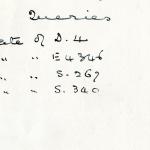 Queries
ate of D. 4
" " E 4346
" " S. 267
" " S. 340